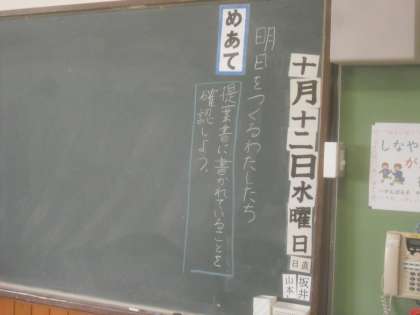 十月十二日水曜日
日直
坂井
山本
明日をつくるわたしたち
めあて
提案書に書かれていることを
確認しよう。
しなや
が